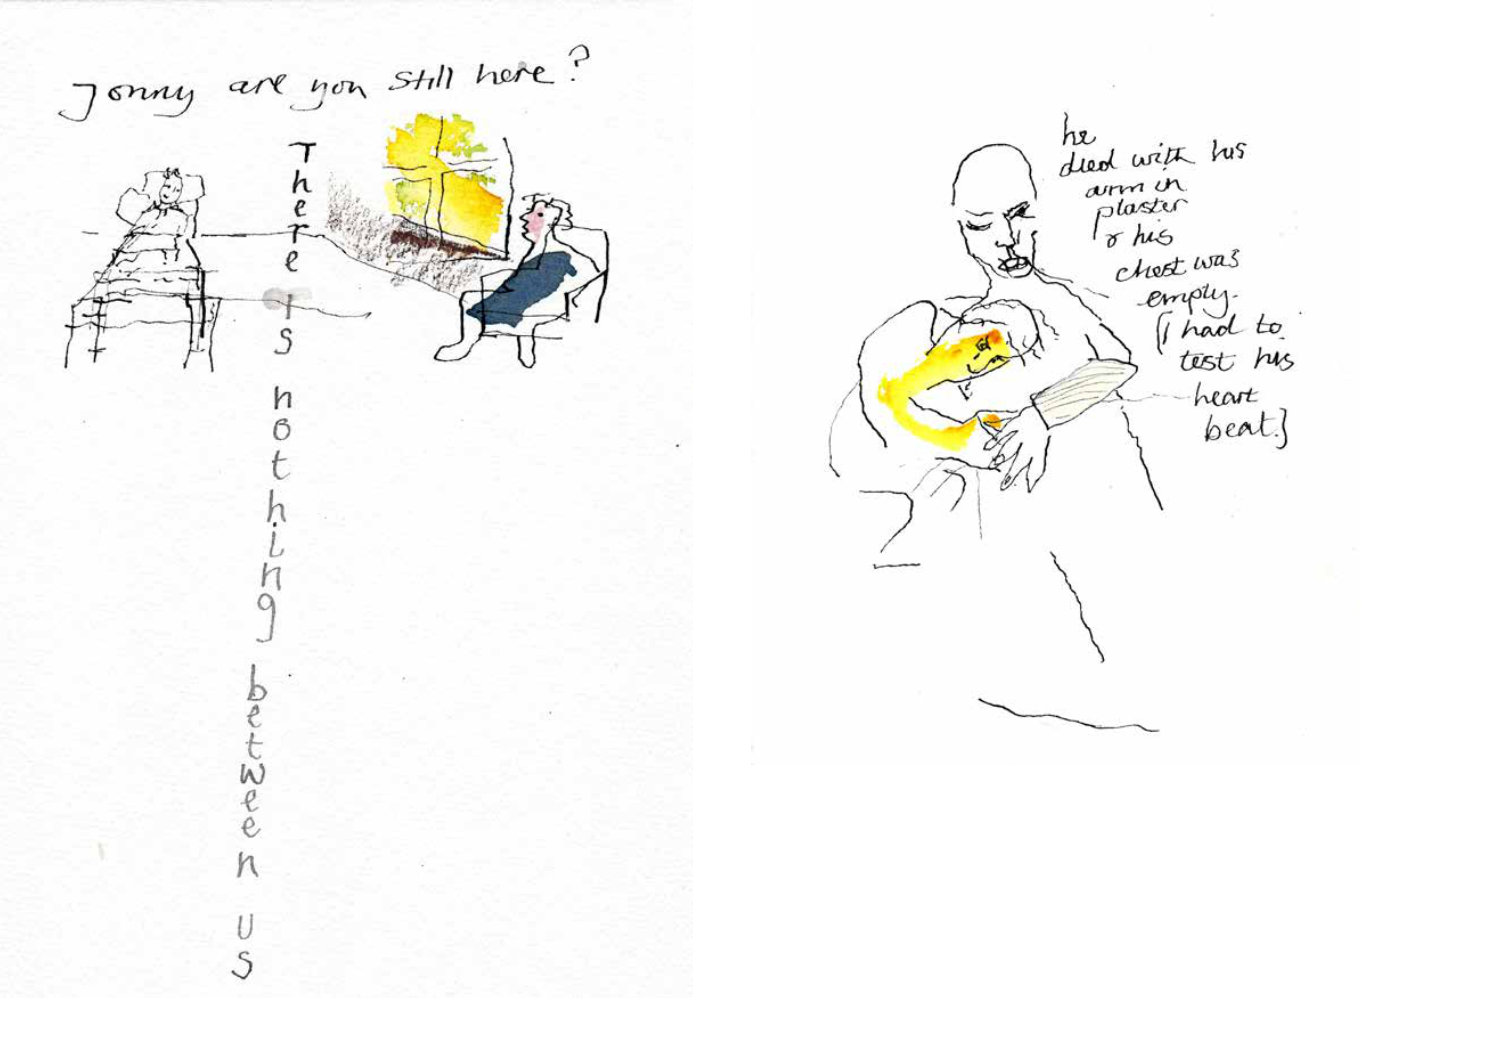 Jonny are you still here?
There is nothing between us
he
died with his
arm in
plaster
& his
chest was
empty.
[I had to
test his
heart
beat.]